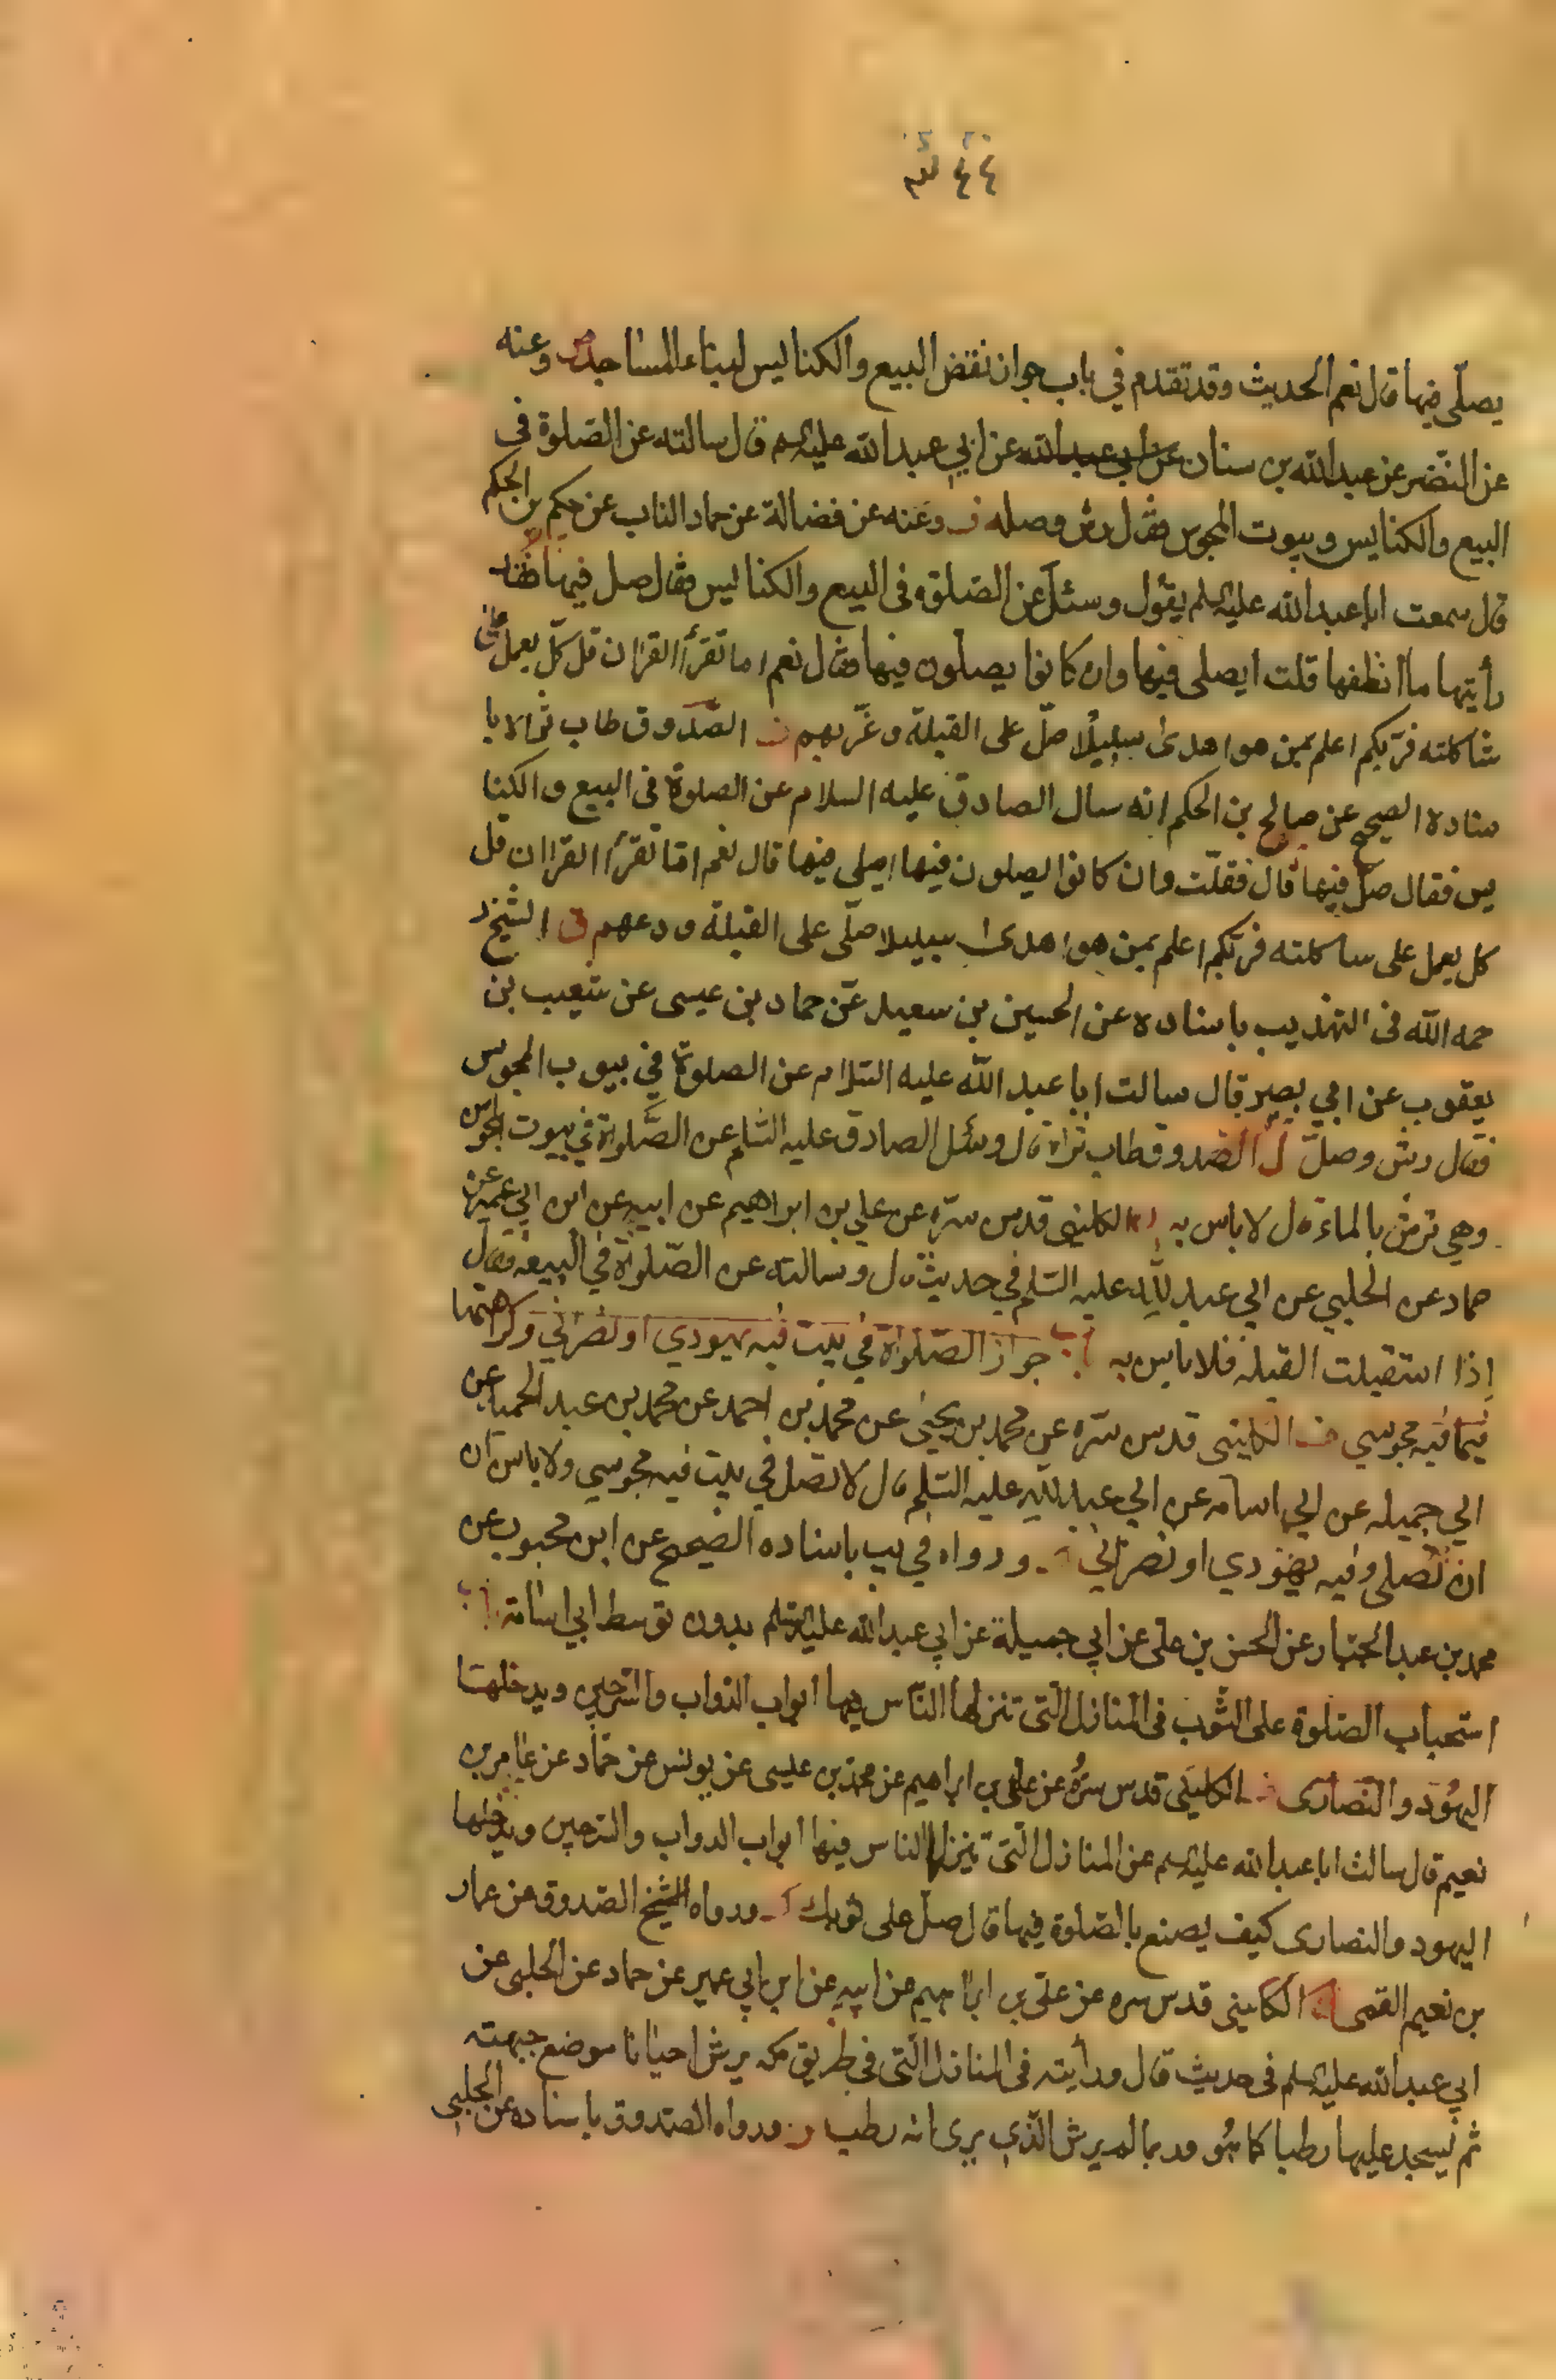 ٤٤
يصلّى فيها قال نعم الحديث وقد تقدم في باب جواز نقض البيع والكنايس لبناء المساجد وعنه
عن النّضر عن عبد الله بن سنان عن ابي عبد الله عن ابي عبد الله عليه السلم قال سالته عن الصّلوة في
البيع والكنايس وبيوت المجوس فقال رش وصله وعنه عن فضالة عن حماد الناب عن حكيم بن الحكم
قال سمعت ابا عبد الله عليه السلم يقول وسئل عن الصّلوة فى البيع والكنايس فقال صل فيها قد
رأيتها ما انظفها قلت ايصلى فيها وان كانوا يصلون فيها فقال نعم اما تقرأ القران قل كلّ يعمل على
شاكلته فربكم اعلم بمن هو اهدى سبيلا صلّ على القبلة وغرّبهم الصّدوق طاب ثراه با
سناده الصحيح عن صالح بن الحكم انه سال الصادق عليه السلام عن الصلوة فى البيع والكنا
يس فقال صلّ فيها قال فقلت وان كانوا يصلون فيها اصلى فيها قال نعم اما تقرأ القران قل
كل يعمل على شاكلته فربكم اعلم بمن هو اهدى سبيلا صلّى على القبلة ودعهم الشيخ ر
حمه الله فى التهذيب باسناده عن الحسين بن سعيد عن حماد بن عيسى عن شعيب بن
يعقوب عن ابي بصير قال سالت ابا عبد الله عليه السّلام عن الصلوة في بيوت المجوس
فقال رش وصلّ الصدوق طاب ثراه قال وسئل الصادق عليه السّلم عن الصَّلوة في بيوت المجوس
وهي ترش بالماء قال لا باس به الكليني قدس سرّه عن علي بن ابراهيم عن ابيه عن ابن ابي عمير عن
حماد عن الحلبي عن ابي عبد الله عليه السّلم في حديث قال وسالته عن الصّلوة في البيعه فقال
إذا استقبلت القبله فلا باس به باب جواز الصّلوة في بيت فيه يهودي او نصراني وكراهتها
فيما فيه مجوسي الكليني قدس سرّه عن محمد بن يحيى عن محمد بن احمد عن محمد بن عبد الحميد عن
ابي جميله عن ابي اسامه عن ابي عبد الله عليه السّلم قال لا تصل في بيت فيه مجوسي ولا باس ان
ان تصلى وفيه يهودي او نصراني ورواه في يب باسناده الصحيح عن ابن محبوب عن
محمد بن عبد الجبار عن الحسن بن على عن ابي جميلة عن ابي عبد الله عليه السلم بدون توسط ابي اسامة باب
استحباب الصّلوة على الثوب فى المنازل الّتى تنزلها النّاس فيها ابواب الدواب والسّرجين ويدخلها
اليهُود والنّصارى الكلينى قدس سرّه عن على بن ابراهيم عن محمد بن عيسى عن يونس عن حمّاد عن عامر بن
نعيم قال سالت ابا عبد الله عليه السلم عن المنازل الّتى تنزلها الناس فيها ابواب الدواب والسّرجين ويدخلها
اليهود والنصارى كيف يصنع بالصّلوة فيها قال صلّ على ثوبك ورواه الشيخ الصّدوق عن عمار
بن نعيم القمى الكلينى قدس سره عن على بن ابراهيم عن ابيه عن ابن ابي عمير عن حماد عن الحلبى عن
ابي عبد الله عليه السلم فى حديث قال ورأيته فى المنازل الّتى فى طريق مكه يرش احيانا موضع جبهته
ثم يسجد عليها رطبا كما هُو وربما لم يرش الّذي يرى انه رطب ورواه الصّدوق باسناده عن الحلبى